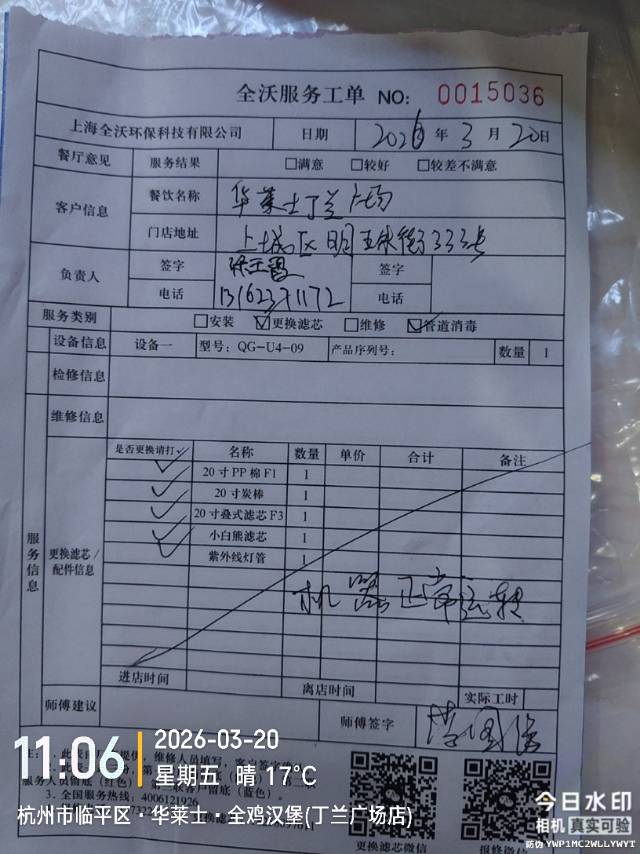 全沃服务工单 NO: 0015036
上海全沃环保科技有限公司 日期 2026年3月20日
餐厅意见 服务结果 □满意 □较好 □较差不满意
客户信息 餐饮名称 华莱士丁兰广场
门店地址 上城区明玉珠街333号
负责人 签字 签字
电话 13162371172 电话
服务类别 □安装 ☑更换滤芯 □维修 ☑管道消毒
设备信息 设备一 型号: QG-U4-09 产品序列号: 数量 1
检修信息
维修信息
服务信息
更换滤芯/配件信息
是否更换请打✓ 名称 数量 单价 合计 备注
✓ 20寸PP棉F1 1
✓ 20寸炭棒 1
✓ 20寸叠式滤芯F3 1
✓ 小白熊滤芯 1
紫外线灯管 1
机器正常运转
进店时间 离店时间 实际工时
师傅建议 师傅签字
3.全国服务热线: 4006121926
更换滤芯微信
11:06
2026-03-20
星期五 晴 17°C
杭州市临平区·华莱士·全鸡汉堡(丁兰广场店)
今日水印
相机 真实可验
防伪 YWP1MC2WLLYWYT